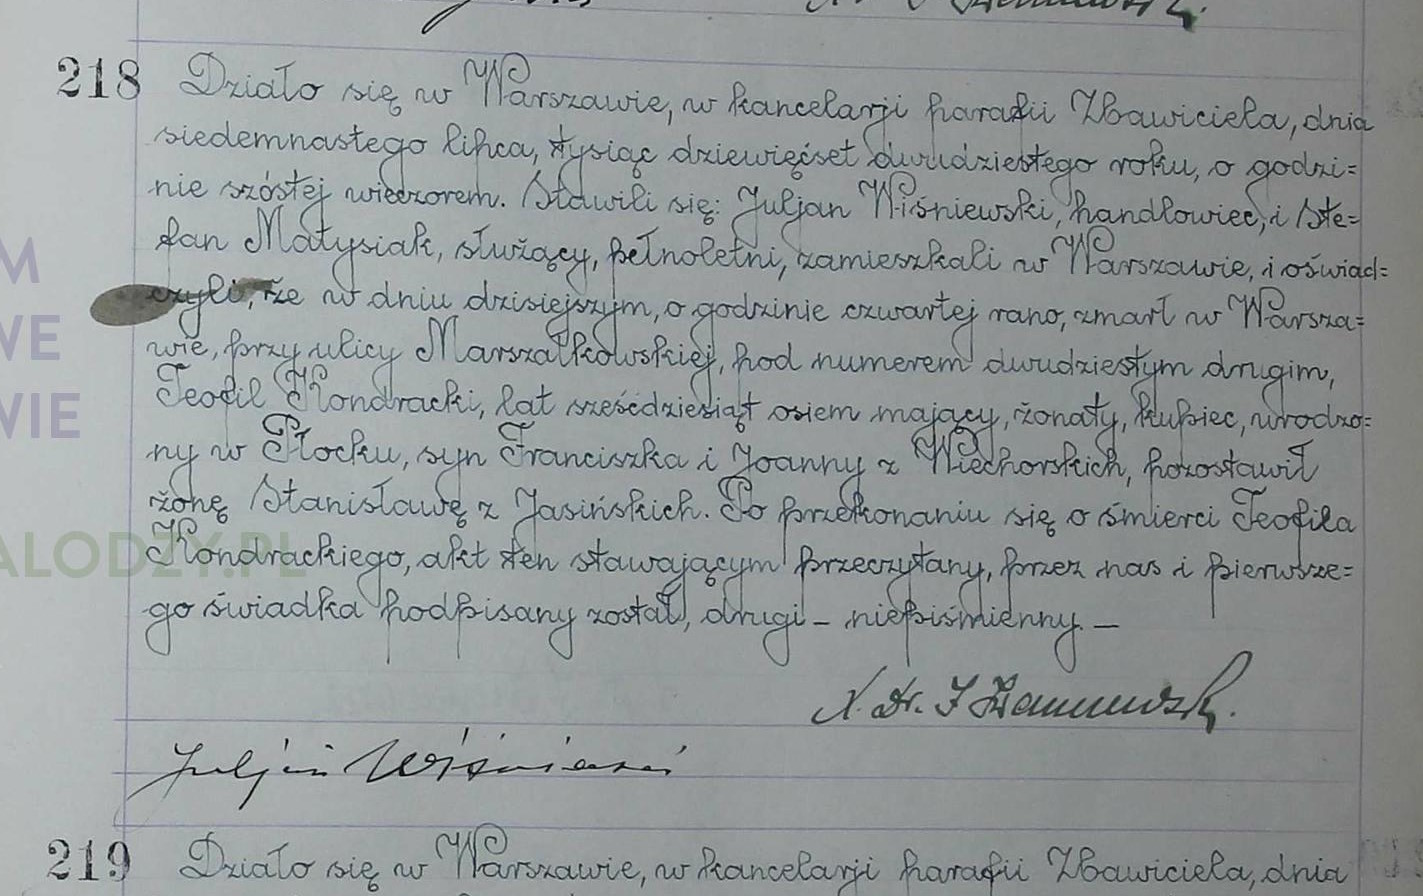 218 Działo się w Warszawie, w kancelarji parafii Zbawiciela, dnia
siedemnastego lipca, tysiąc dziewięćset dwudziestego roku, o godzi=
nie szóstej wieczorem. Stawili się: Juljan Wiśniewski, handlowiec, i Ste=
fan Matysiak, służący, pełnoletni, zamieszkali w Warszawie, i oświad=
czyli, że w dniu dzisiejszym, o godzinie czwartej rano, zmarł w Warsza=
wie, przy ulicy Marszałkowskiej, pod numerem dwudziestym drugim,
Teofil Kondracki, lat sześćdziesiąt osiem mający, żonaty, kupiec, urodzo=
ny w Płocku, syn Franciszka i Joanny z Wiechorskich, pozostawił
żonę Stanisławę z Jasińskich. Po przekonaniu się o śmierci Teofila
Kondrackiego, akt ten stawającym przeczytany, przez nas i pierwsze=
go świadka podpisany został, drugi – niepiśmienny. –
X. Dr.
Juljan Wiśniewski
219 Działo się w Warszawie, w kancelarji parafii Zbawiciela, dnia
M
WE
WIE
ALODZY.PL